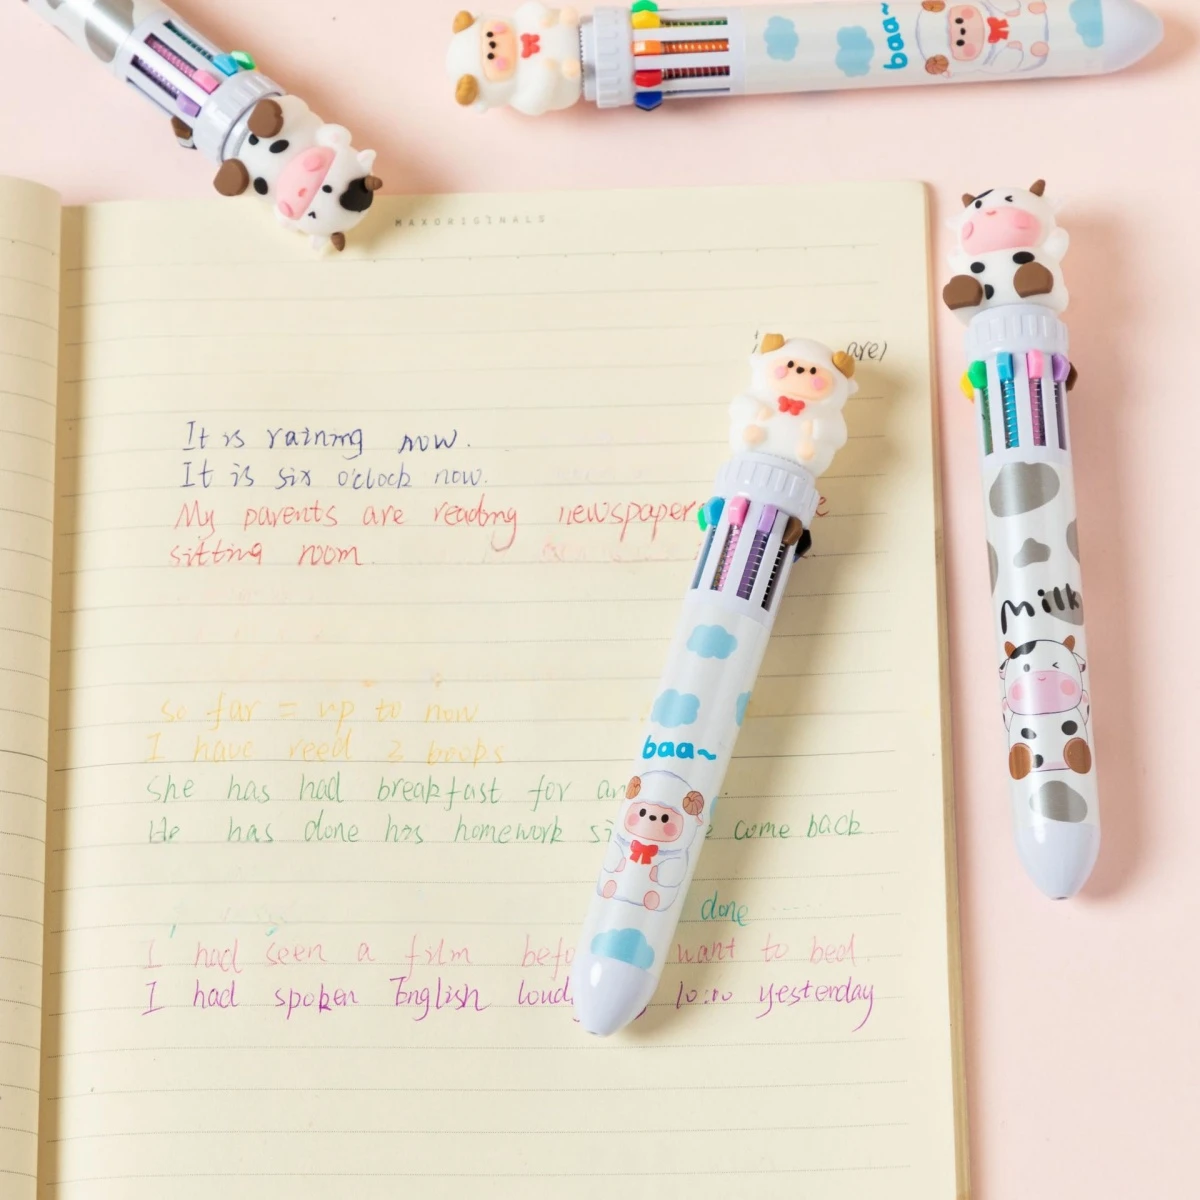 baa~
MAXORIGINALS
are)
It is raining now.
It is six o'clock now.
My parents are reading newspaper
sitting room.
Milk
so far = up to now
I have reed 2 books
baa~
She has had breakfast for an
He has done his homework si e come back
done
I had seen a film befo want to bed.
I had spoken English loud 10:10 yesterday